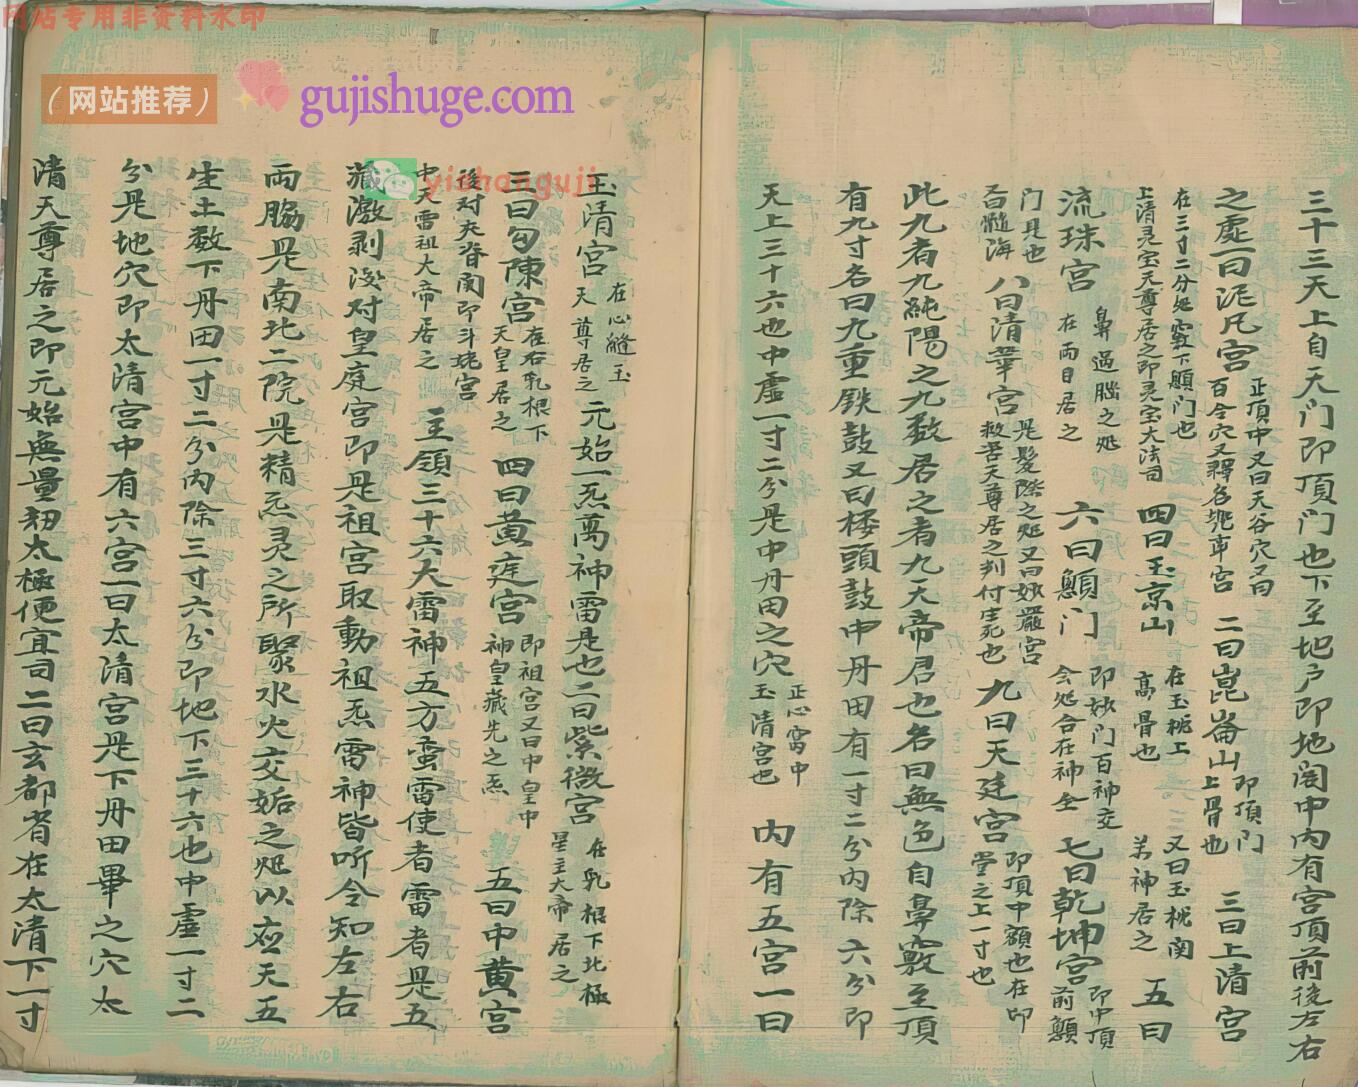 网站专用非资料水印
（网站推荐）
gujishuge.com
yishanguji
三十三天上自天门即頂门也下至地户即地阁中内有宫頂前後左右
之處一曰泥凡宫
正頂中又曰天谷穴又曰
百会穴又释名兠率宫
二曰崑崙山
即頂门
上骨也
三曰上清宫
在三寸二分处竅下顖门也
上清灵宝天尊居之即灵宝大法司
四曰玉京山
在玉桃上
高骨也
又曰玉桃関
弟神居之
五曰
流珠宫
鼻過腦之处
在两目居之
六曰顖门
即妙门百神交
会处合在神全
七曰乾坤宫
即中頂
前顖
门是也
否髓海
八曰清華宫
是髮際之处又曰妙嚴宫
救苦天尊居之判付生死也
九曰天廷宫
即頂中額也在印
堂之上一寸也
此九者九純陽之九数居之者九天帝君也名曰無色自鼻竅至頂
有九寸名曰九重鉄鼓又曰楼頭鼓中丹田有一寸二分内除六分即
天上三十六也中虚一寸二分是中丹田之穴
正心窩中
玉清宫也
内有五宫一曰
玉清宫
在心縫玉
天尊居之
元始一炁萬神雷是也二曰紫微宫
在乳根下北極
星主大帝居之
三曰勾陳宫
在右乳根下
天皇居之
四曰黄庭宫
即祖宫又曰中皇中
神皇藏先之炁
五曰中黄宫
後对夹脊関即斗姥宫
中天雷祖大帝居之
主領三十六大雷神五方蛮雷使者雷者是五
藏激剥後对皇庭宫即是祖宫取動祖炁雷神皆听令知左右
両脇是南北二院是精炁灵之所聚水火交姤之处以应天五
生土数下丹田一寸二分内除三寸六分即地下三十六也中虚一寸二
分是地穴即太清宫中有六宫一曰太清宫是下丹田畢之穴太
清天尊居之即元始無量劫太極便宜司二曰玄都省在太清下一寸